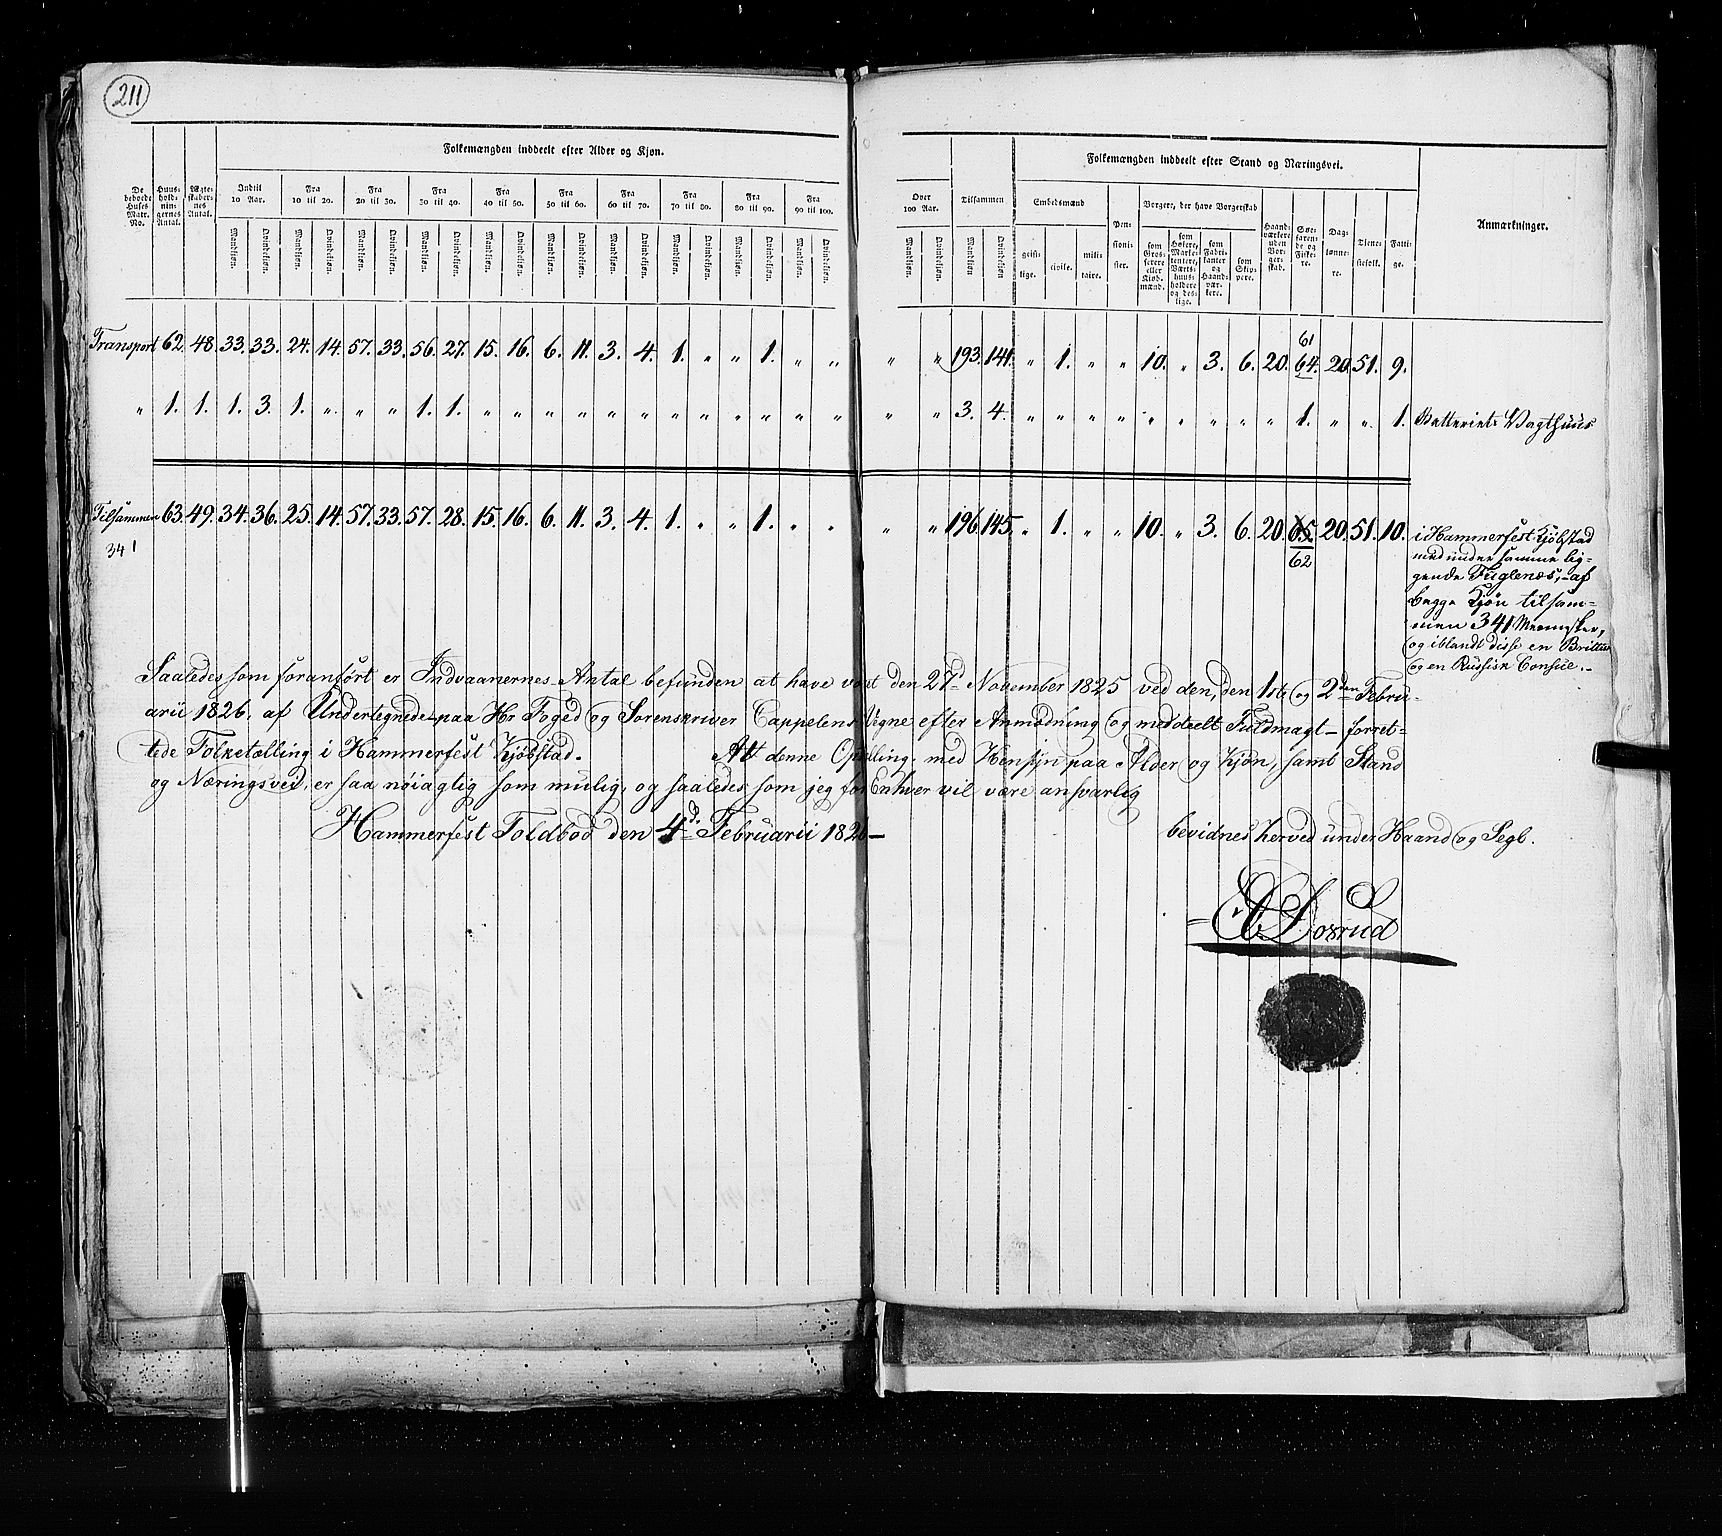 211
Folkemængden inddeelt efter Alder og Kjøn.
De beboede Huses Matr. No.
Huus-hold-nin-gernes Antal.
Ægte-skaber-nes Antal.
Indtil 10 Aar.
Fra 10 til 20.
Fra 20 til 30.
Fra 30 til 40.
Fra 40 til 50.
Fra 50 til 60.
Fra 60 til 70.
Fra 70 til 80.
Fra 80 til 90.
Fra 90 til 100.
Mandkjøn. Qvindekjøn. Mandkjøn. Qvindekjøn. Mandkjøn. Qvindekjøn. Mandkjøn. Qvindekjøn. Mandkjøn. Qvindekjøn. Mandkjøn. Qvindekjøn. Mandkjøn. Qvindekjøn. Mandkjøn. Qvindekjøn. Mandkjøn. Qvindekjøn. Mandkjøn. Qvindekjøn.
Over 100 Aar.
Tilsammen
Mandkjøn. Qvindekjøn. Mandkjøn. Qvindekjøn.
Folkemængden inddeelt efter Stand og Næringsvei.
Embedsmænd
geistlige. civile. militaire.
Pensionister.
Borgere, der have Borgerskab
som Grosserere eller Kiøbmænd.
som Høkere, Marketentere, Værtshuusholdere og deslige.
som Fabrikanter og Haandværkere.
som Skippere.
Haandværkere uden Borgerskab.
Søefarende og Fiskere.
DagLønnere.
Tienestefolk.
Fattige.
Anmærkninger.
61
Transport 62. 48. 33. 33. 24. 14. 57. 33. 56. 27. 15. 16. 6. 11. 3. 4. 1. " " 1. " " " " 193. 141. " 1. " " 10. " 3. 6. 20. 64. 20. 51. 9.
" 1. 1. 1. 3. 1. " " " 1. 1. " " " " " " " " " " " " " " 3. 4. " " " " " " " " " 1. " " 1. Batteriets Vagthuus
Tilsammen 63. 49. 34. 36. 25. 14. 57. 33. 57. 28. 15. 16. 6. 11. 3. 4. 1. " " 1. " " " " 196. 145. " 1. " " 10. " 3. 6. 20. 65. 20. 51. 10.
341
62
i Hammerfest Kjøbstad
med under samme lig-
gende Fuglenæs, - af
begge Kjøn tilsam-
men 341 Mennesker,
og iblandt disse en Brittisk
og en Russisk Consul. -
Saaledes som foranført er Indvaanernes Antal befunden at have vært den 27d November 1825 ved den, den 1ste og 2den Febru-
arii 1826. af Undertegnede paa Hr Foged og Sorenskriver Cappelens Vegne efter Anmodning og meddeelt Fuldmagt - forret-
tede Folketælling i Hammerfest Kjøbstad. At denne Optelling, med Hensyn paa Alder og Kjøn, samt Stand
og Næringsvei, er saa nøiagtig som mulig, og saaledes som jeg for Enhver vil være ansvarlig
Hammerfest Toldbod den 4d Februarii 1826 - bevidnes herved under Haand og Segl.